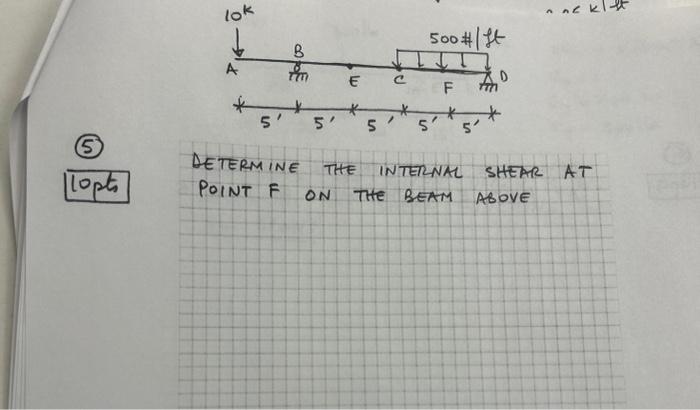 10K
500#/ft
A
B
E
C
F
D
5' 5' 5' 5' 5'
5
10pts
DETERMINE THE INTERNAL SHEAR AT
POINT F ON THE BEAM ABOVE